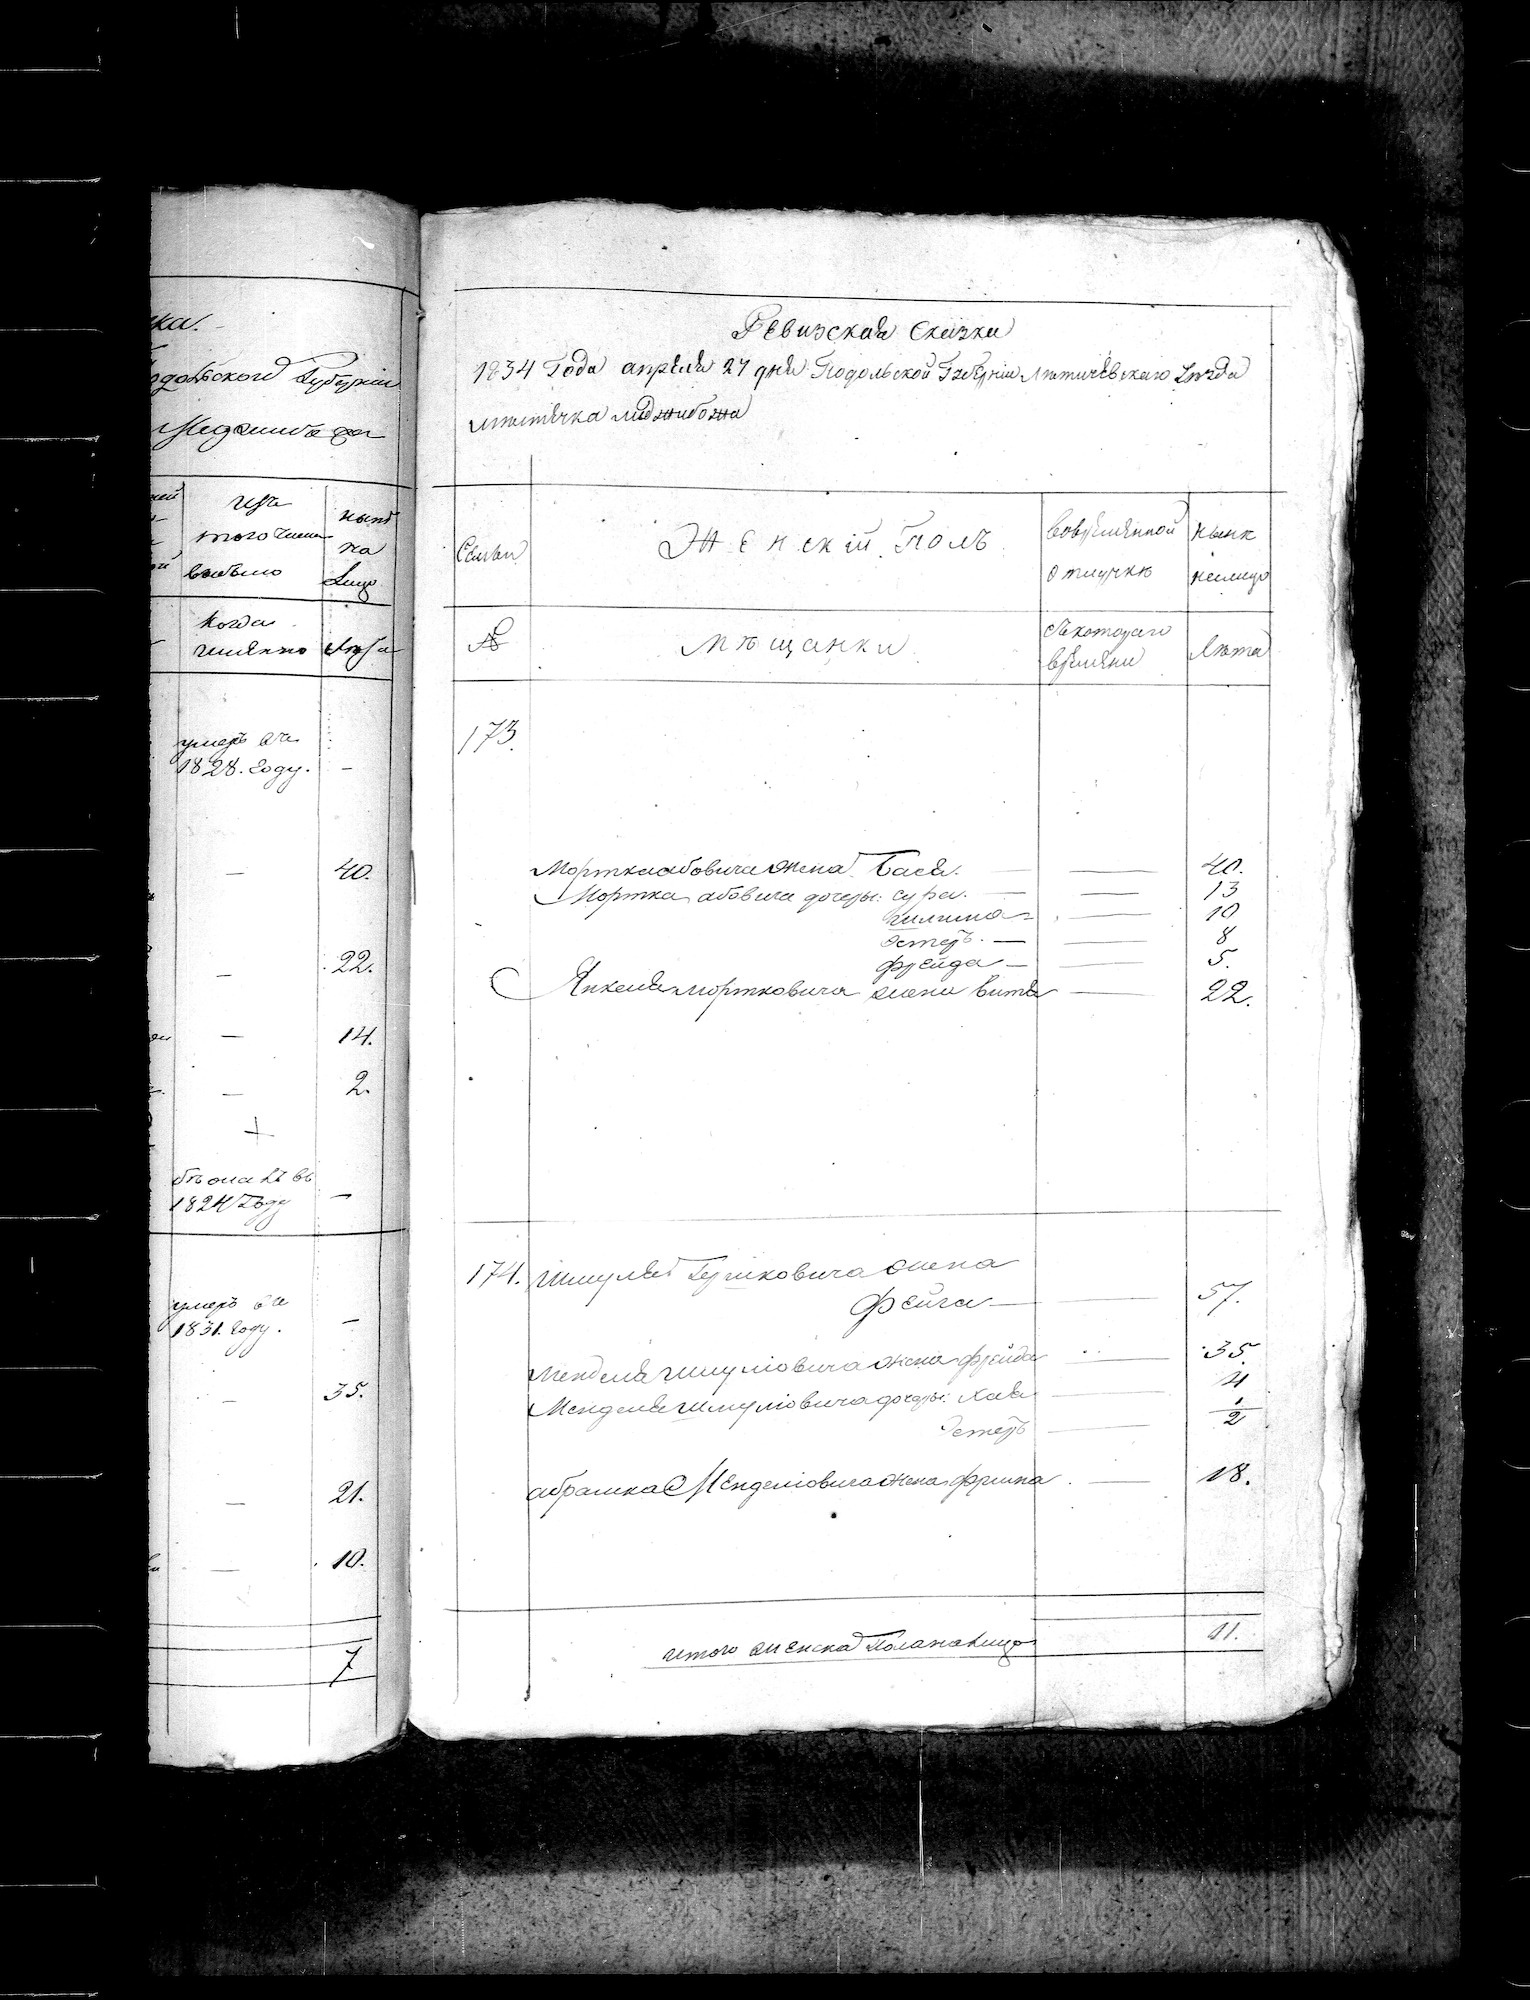 ка.
Подольского Губерніи
Меджибожа
изъ
того числа
выбыло
ныне
на
Лицо
Когда
именно
Лета
умеръ въ
1828. году. —
— 40.
— 22.
— 14.
— 2.
1824 Году —
умеръ въ
1831. году. —
— 35.
— 21.
— 10.
7
Ревизская Сказка
1834 Года апреля 27 дня Подольской Губерніи Летичевскаго уезда
местечка меджибожа
Семьи
Женскій Полъ
Вовременной
отлучке
ныне
налицо
№
мещанки
съ котораго
времени
Лета
173.
Мортка абовича жена Бася. — — 40.
Мортка абовича дочеры: сура. — — 13
— 10
Эстеръ. — — 8
Фрейда — — 5.
Янкеля мортковича жена Витя — 22.
174. Шмуля Гершковича жена
Фейга — — 57.
Менделя Шмулiовича жена фрейда — 35.
Менделя Шмулiовича дочеры: Хая — 4
Эстеръ — 1/2
абрамка Менделiовича жена — 18.
итого женска Пола на лицо 11.